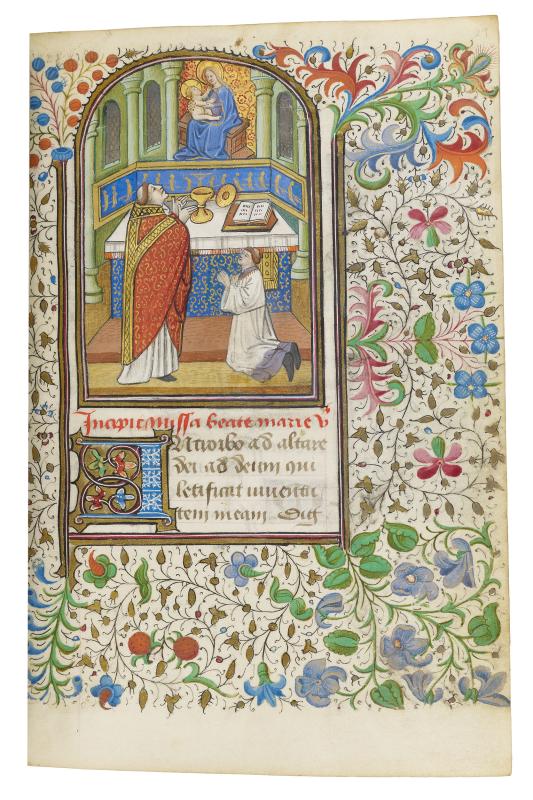 Incipit missa beate marie v
INtroibo ad altare
dei ad deum qui
letificat iuuentu
tem meam Dig